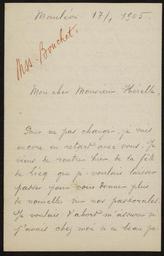 Mauléon 17/1 1905.
Mss. Bouchet.
Mon cher Monsieur Hérelle,
Pour ne pas changer, je suis
encore en retard avec vous. Je
viens de rentrer hier de la fête
de Licq que je voulais laisser
passer pour vous donner plus
de nouvelles sur nos pastorales.
Je voulais d'abord m'assurer si
j'avais chez moi de beau pa-